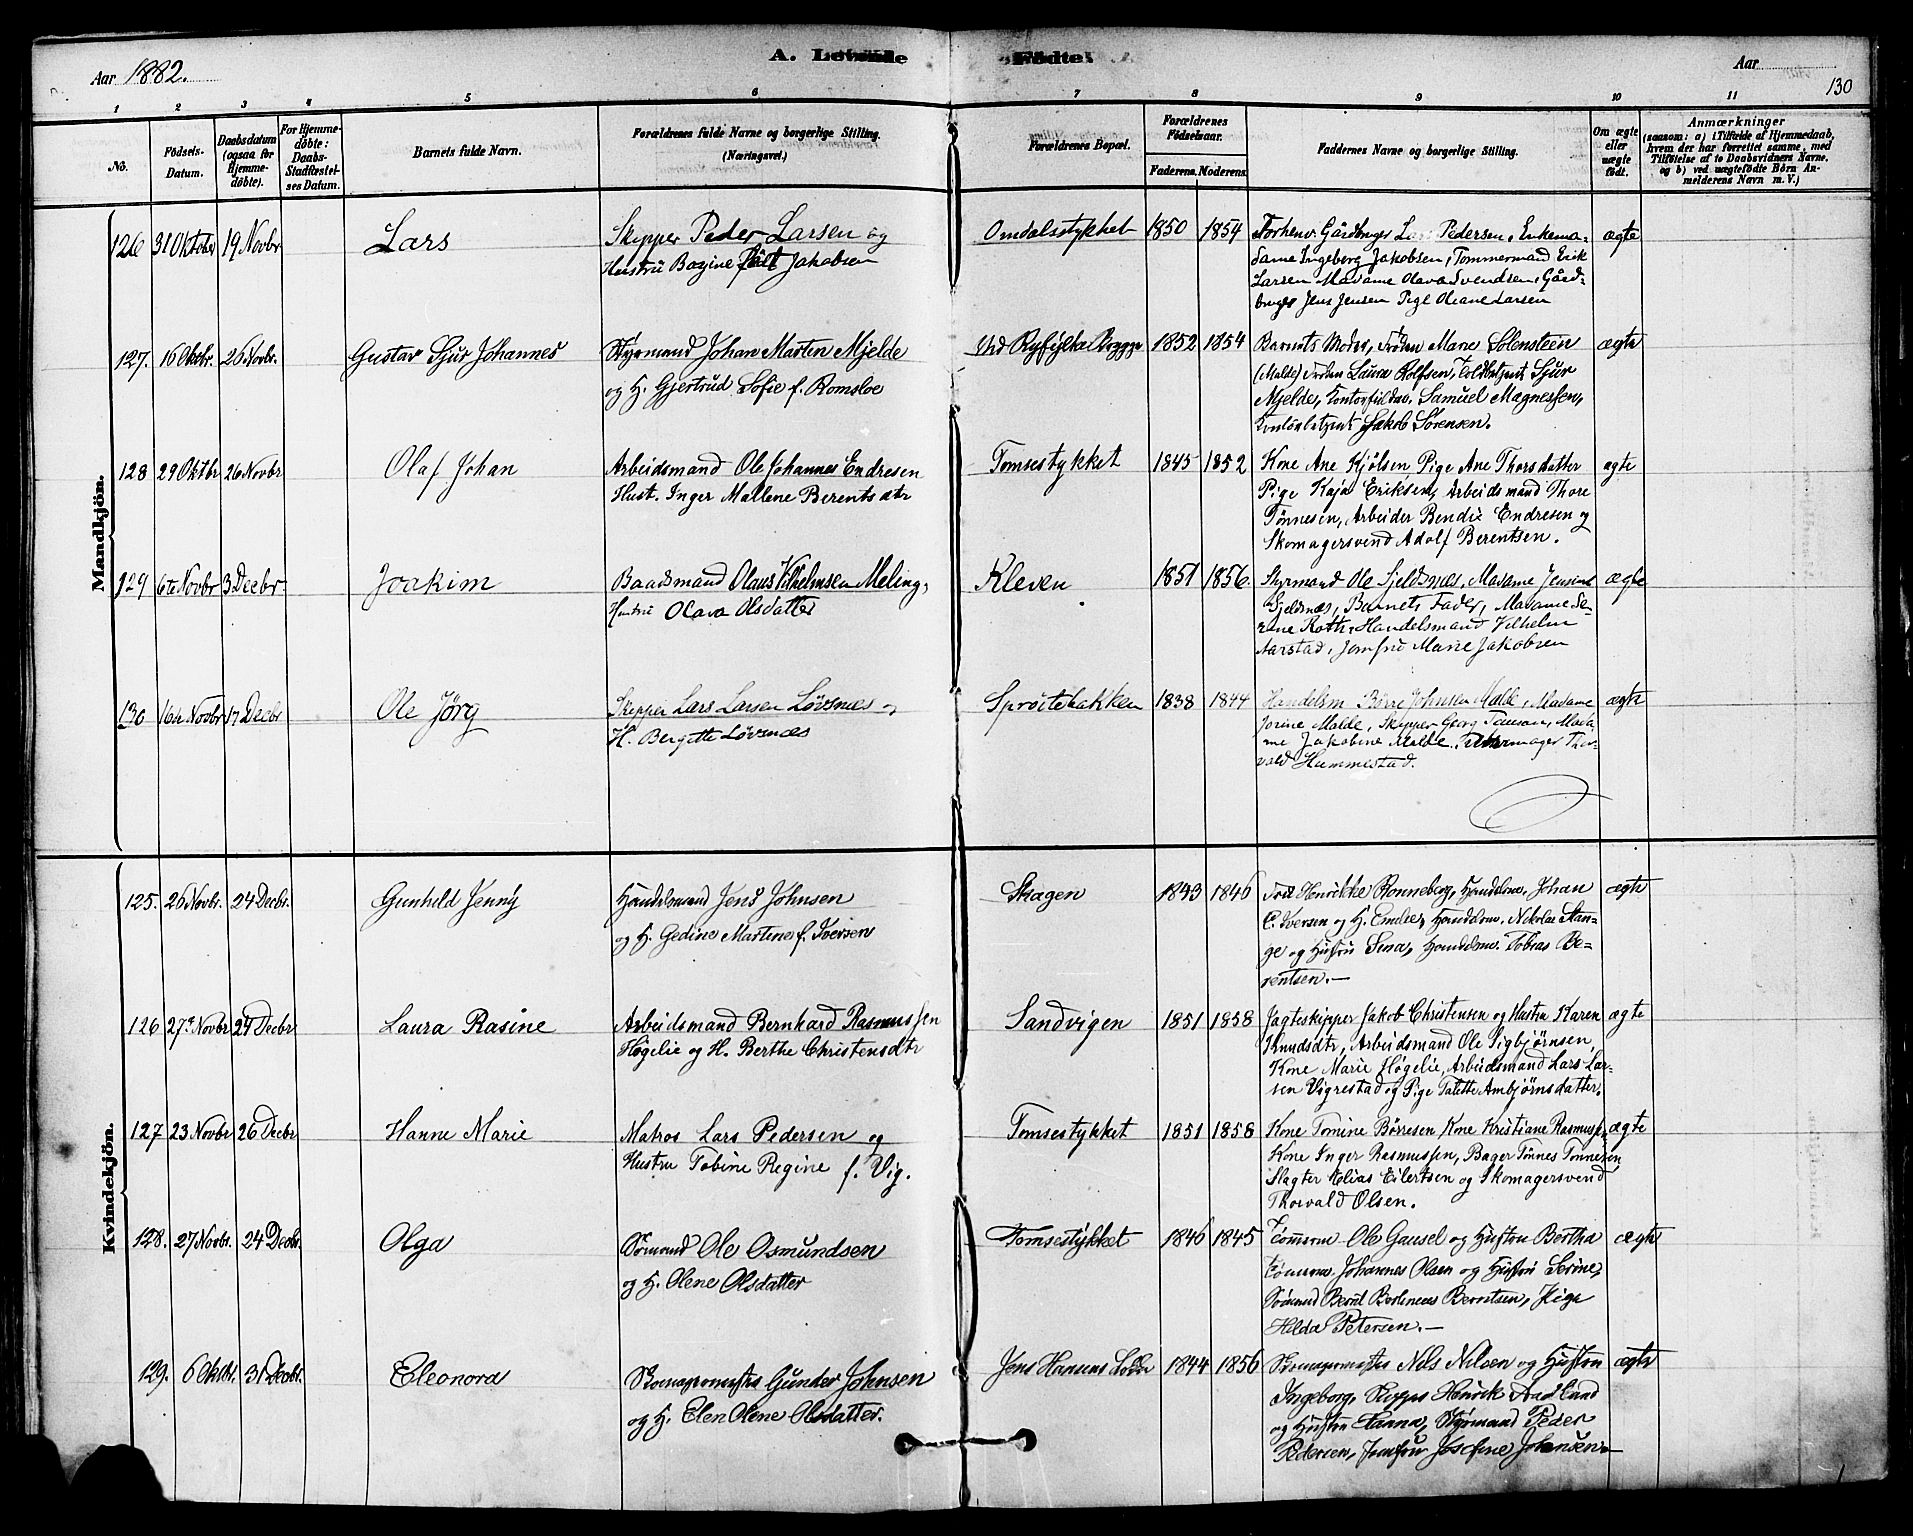 A. Levende Fødte.
Aar 1882.
Aar
130
1 2 3 4 5 6 7 8 9 10 11
No.
Fødsels-Datum.
Daabsdatum (ogsaa for Hjemmedöbte).
For Hjemmedöbte: Daabs-Stadfæstelses Datum.
Barnets fulde Navn.
Forældrenes fulde Navne og borgerlige Stilling. (Næringsvei.)
Forældrenes Bopæl.
Forældrenes Födselsaar.
Faderens. Moderens.
Faddernes Navne og borgerlige Stilling.
Om ægte eller uægte født.
Anmærkninger
(saasom: a) i Tilfælde af Hjemmedaab,
hvem der har forrettet samme, med
Tilføielse af to Daabsvidners Navne,
og b) ved uægtefødte Børn An-
melderens Navn m. V.)
Mandkjön.
126 31 Oktober 19 Novbr Lars
Skipper Peder Larsen og
Hustru Bazine født Jakobsen
Omdalsstykket 1850 1854
Forhenv. Gårdbruger Lars Pedersen, Enkema-
dame Ingeborg Jakobsen, Tømmermand Erik
Larsen Madame Olava Svendsen, Gård-
bruger Jens Jensen Pige Oleane Larsen
ægte
127. 16 Oktbr. 26 Novbr. Gustav Sjur Johannes
Styrmand Johan Martin Mjelde
og H. Gjertrud Sofie f. Romsloe
Ved Ryfylke Brygge 1852 1854
Barnets Moder, Frøken Marie Solensteen
(Malde) Frøken Laura Rolfsen, Toldbetjent Sjur
Mjelde, Samuel Magnessen,
Jakob Sørensen.
ægte
128 29 Oktbr 26 Novbr Olaf Johan
Arbeidsmand Ole Johannes Endresen
Hust. Inger Mallene Berentsdtr
Tomsestykket 1845 1852
Kone Ane Kjølsen Pige Ane Thorsdatter
Pige Kaja Eriksen, Arbeidsmand Thore
Tønnesen, Arbeider Bendix Endresen og
Skomagersvend Adolf Berentsen.
ægte
129 6te Novbr 3 Decbr. Joakim
Baadsmand Olaus Vilhelmsen Meling,
Hustru Olava Olsdatter
Kleven 1851 1856
Styrmand Ole Fjeldsnæs, Madame Jensine
Fjeldsnæs, Barnets Fader, Madame Se-
rine Roth, Handelsmand Vilhelm
Aarstad, Jomfru Marie Jakobsen
ægte
130 16de Novbr 17 Decbr Ole Jörg
Skipper Lars Larsen Lövsnæs og
H. Bergitte Lövsnæs
Sprøitebakken 1838 1844
Handelsm Börre Johnsen Malde, Madame
Jorine Malde, Skipper Georg Tausan, Mada-
me Jakobine Malde, Thor-
vald Hammestad.
ægte
Kvindekjön.
125. 26 Novbr. 24 Decbr. Gunhild Jenny
Handelsmand Jens Johnsen
og H. Gedine Martine f. Iversen
Skagen 1843 1846
Frk Henrikke Rønneberg, Handelsm. Johan
C. Iversen og H. Emilie, Handelsm. Nikolai Stan-
ge og Hustru Sina, Handelsm. Tobias Be-
rentsen.—
ægte
126 27de Novbr 24 Decbr Laura Rasine
Arbeidsmand Bernhard Rasmussen
Høgelie og H. Berthe Christensdtr
Sandvigen 1851 1858
Jagteskipper Jakob Christensen og Hustru Karen
Knudsdtr, Arbeidsmand Ole Sigbjørnsen,
Kone Marie Høgelie, Arbeidsmand Lars Lar-
sen Vigrestad og Pige Talette Ambjørnsdatter.
ægte
127 23 Novbr 26 Decbr Hanne Marie
Matros Lars Pedersen og
Hustru Tobine Regine f. Vig.
Tomsestykket 1851 1858
Kone Tomine Børresen, Kone Kristiane Rasmussen,
Kone Inger Rasmussen, Bager Tønnes Tønnesen,
Slagter Helias Eilertsen og Skomagersvend
Thorvald Olsen.
ægte
128. 27 Novbr. 24 Decbr. Olga
Sømand Ole Osmundsen
og H. Olene Olsdatter
Tomsestykket 1846 1845
Tømrm Ole Gausel og Hustru Bertha
Tømrm Johannes Olsen og Hustru Serine,
Sømand Bernt Bertineus Berntsen, Pige
Hilda Petersen.—
ægte
129. 6 Oktbr. 31 Decbr. Eleonora
Skomagermester Gunder Johnsen
og H. Elen Olene Olsdatter.
Jens Hansens Lodde 1844 1856
Skomagermester Nils Nilsen og Hustru
Ingeborg, Skipper Henrik Aadland
og Hustru Hanna, Styrmand Peder
Pedersen, Jomfru Josefine Johansen—
ægte